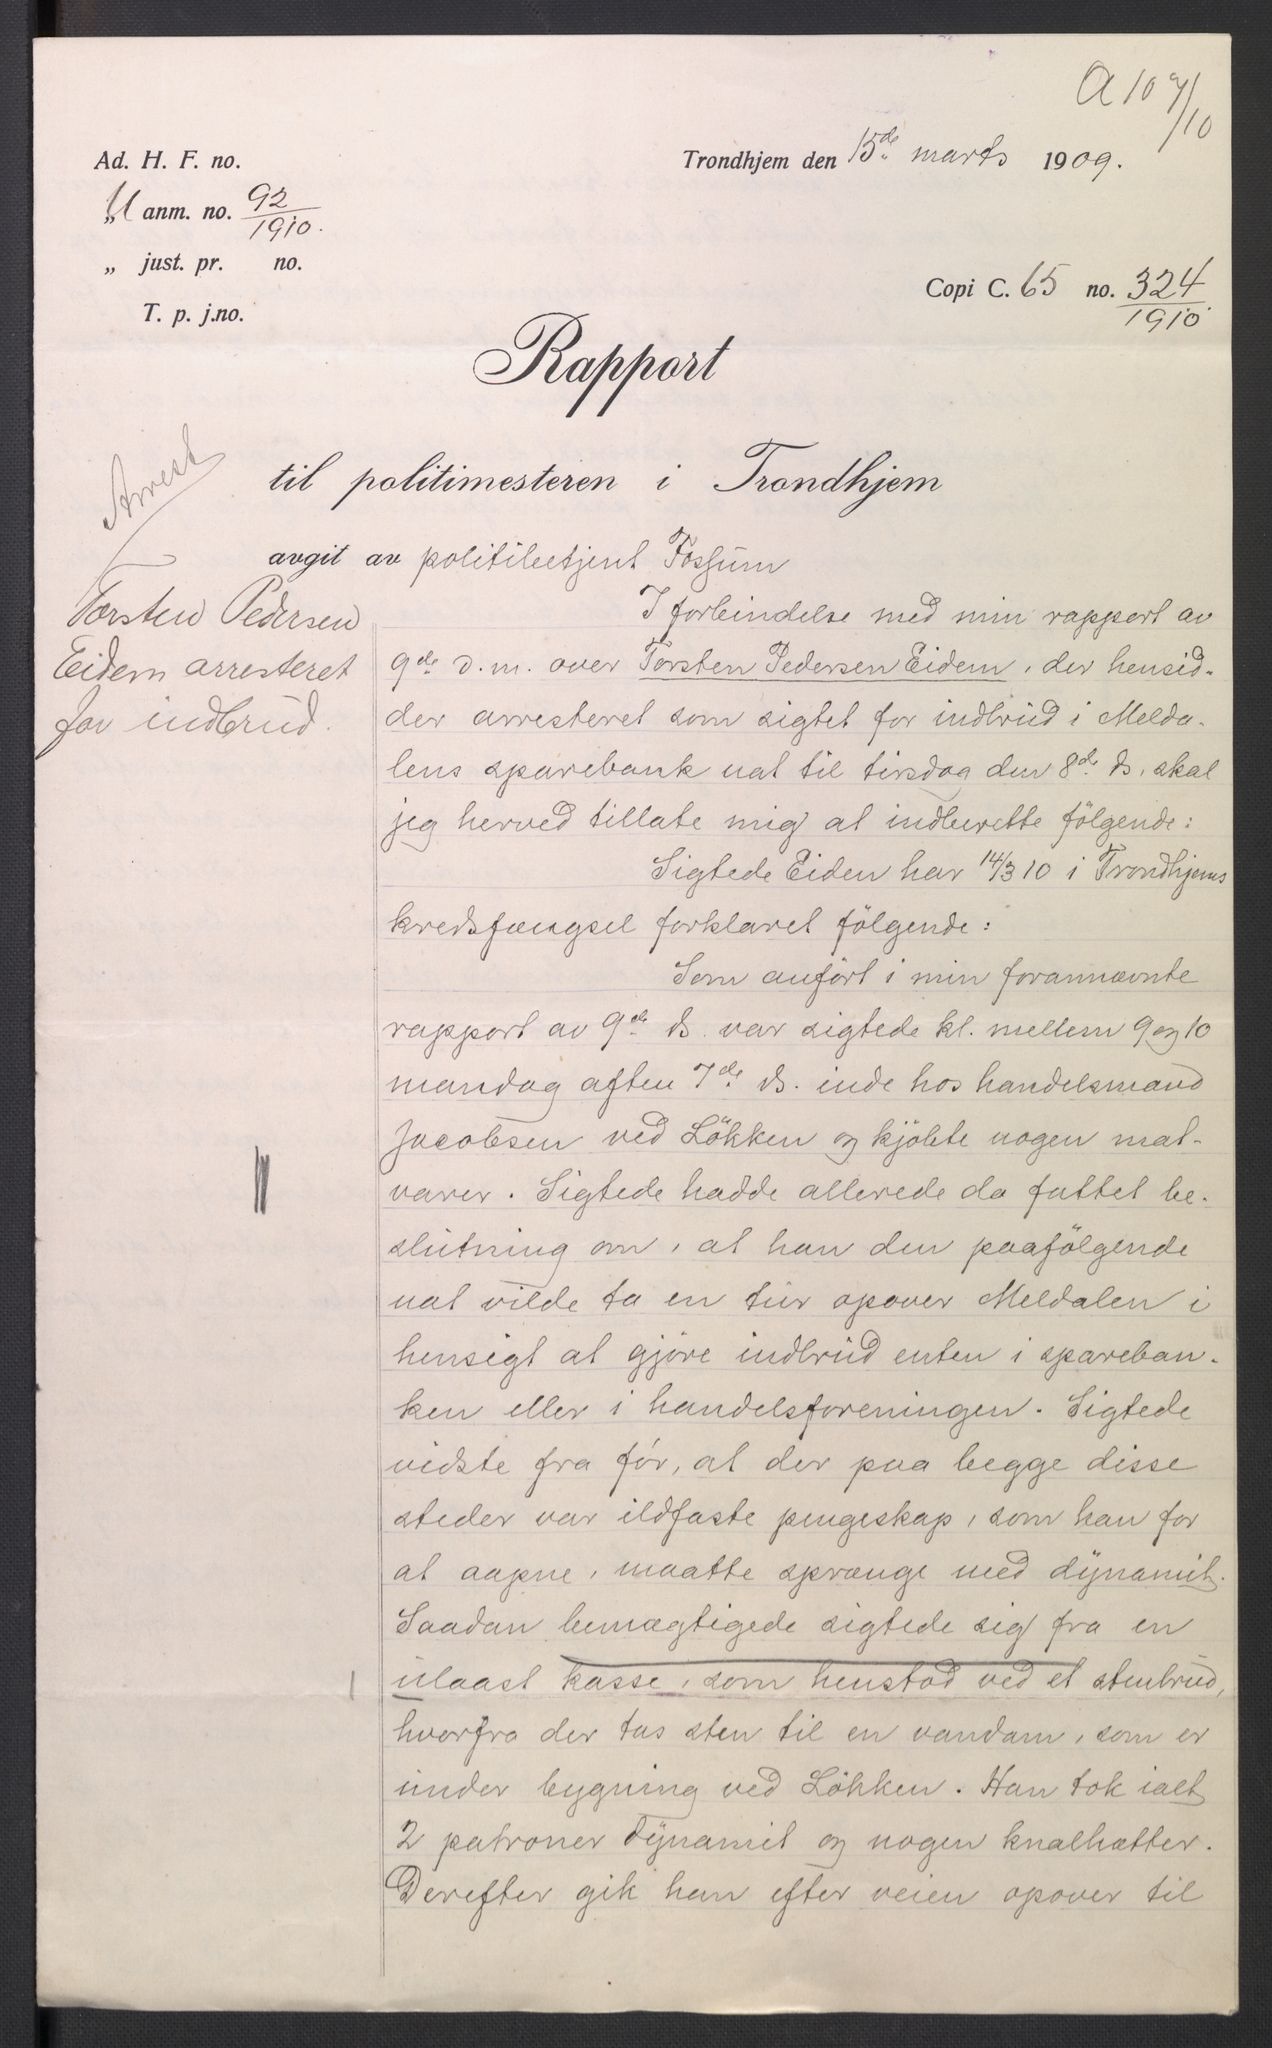 A 107/10
Ad. H. F. no.
Trondhjem den 15de marts 1909.
„ U anm. no. 92/1910.
„ just. pr. no.
Copi C. 65 no. 324/1910.
T. p. j.no.
Rapport
Arrest
til politimesteren i Trondhjem
avgit av politibetjent Fossum
Torsten Pedersen
Eidem arresteret
for indbrud.
I forbindelse med min rapport av
9de d.m. over Torsten Pedersen Eidem, der hensid-
der arresteret som sigtet for indbrud i Melda-
lens sparebank nat til tirsdag den 8de ds. skal
jeg herved tillate mig at indberette følgende:
Sigtede Eiden har 14/3 10 i Trondhjems
kredsfængsel forklaret følgende:
Som anført i min forannævnte
rapport av 9de ds. var sigtede kl. mellem 9 og 10
mandag aften 7de ds. inde hos handelsmand
Jacobsen ved Løkken og kjøbte nogen mat-
varer. Sigtede hadde allerede da fattet be-
slutning om, at han den paafølgende
nat vilde ta en tur opover Meldalen i
hensigt at gjøre indbrud enten i spareban-
ken eller i handelsforeningen. Sigtede
vidste fra før, at der paa begge disse
steder var ildfaste pengeskap, som han for
at aapne, maatte sprænge med dynamit.
Saadan bemægtigede sigtede sig fra en
ulaast kasse, som henstod ved et stenbrud,
hvorfra der tas sten til en vandam, som er
under bygning ved Løkken. Han tok ialt
2 patroner dynamit og nogen knalhætter.
Derefter gik han efter veien opover til